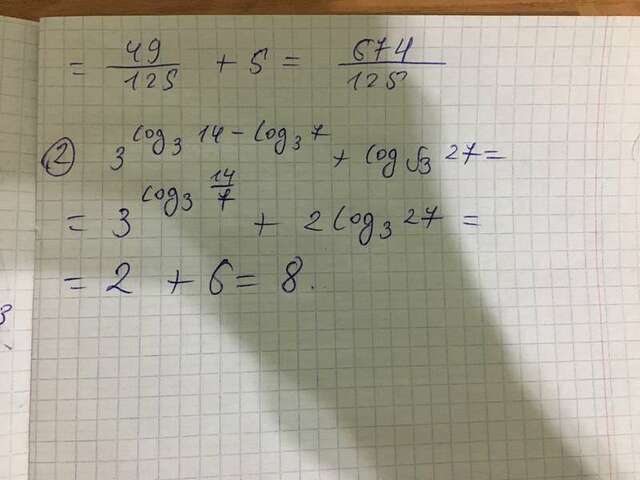 = 49/125 + 5 = 674/125
② 3^(log₃ 14 - log₃ 7) + log_√3 27 =
= 3^(log₃ 14/7) + 2 log₃ 27 =
= 2 + 6 = 8.